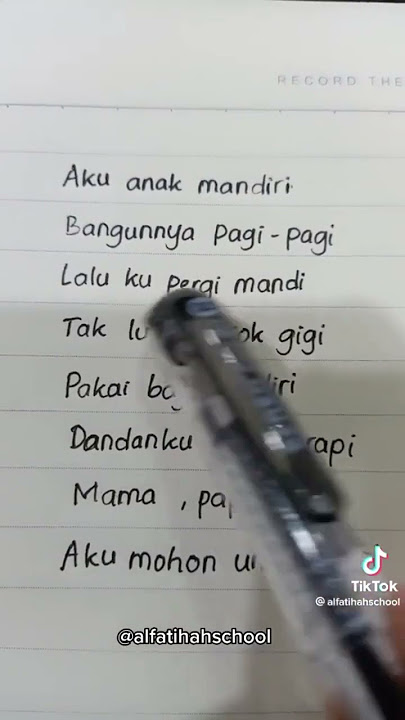 RECORD THE
Aku anak mandiri
Bangunnya pagi-pagi
Lalu ku pergi mandi
Tak gigi
Pakai
Dandanku rapi
Mama ,
Aku mohon
TikTok
@alfatihahschool
@alfatihahschool